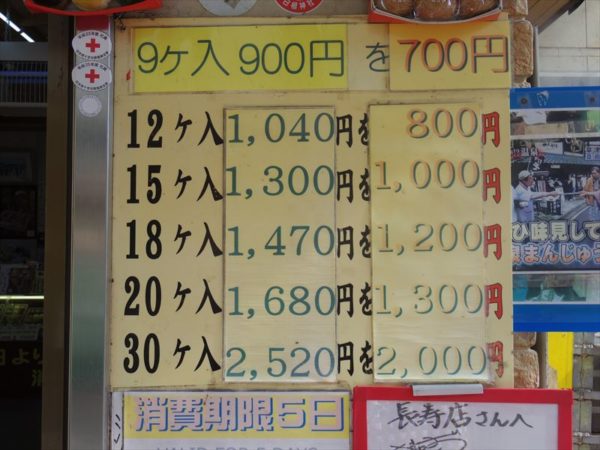 9ヶ入 900円 を 700円
12ヶ入 1,040円を 800円
15ヶ入 1,300円を 1,000円
18ヶ入 1,470円を 1,200円
20ヶ入 1,680円を 1,300円
30ヶ入 2,520円を 2,000円
消費期限5日
長寿店さんへ
ひ味見して
まんじゅう